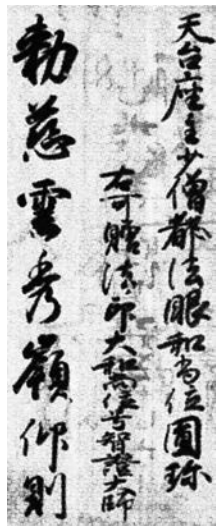 天台座主少僧都法眼和尚位圓珍
右可贈法印大和尚位号智證大師
勅慈雲秀嶺仰則